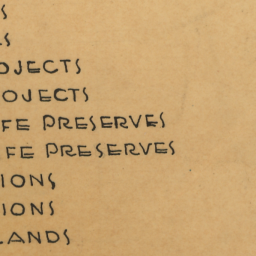 S
LS
OJECTS
OJECTS
FE PRESERVES
FE PRESERVES
IONS
IONS
LANDS